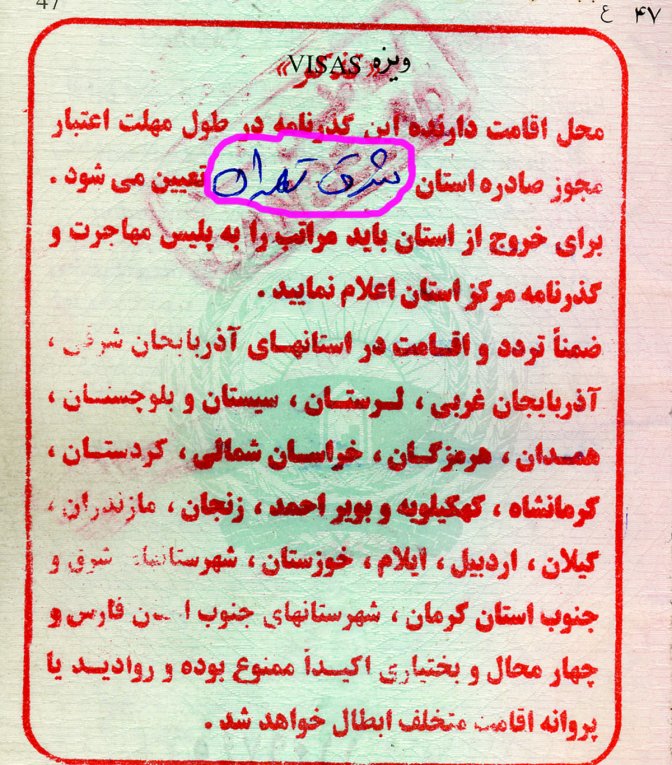 47
۴۷ ع
ویزه VISAS
«تذکر»
محل اقامت دارنده این گذرنامه در طول مهلت اعتبار
مجوز صادره استان شرق تهران تعیین می شود .
برای خروج از استان باید مراتب را به پلیس مهاجرت و
گذرنامه مرکز استان اعلام نمایید .
ضمناً تردد و اقامت در استانهای آذربایجان شرقی ،
آذربایجان غربی ، لرستان ، سیستان و بلوچستان ،
همدان ، هرمزگان ، خراسان شمالی ، کردستان ،
کرمانشاه ، کهکیلویه و بویر احمد ، زنجان ، مازندران ،
گیلان ، اردبیل ، ایلام ، خوزستان ، شهرستانهای شرق و
جنوب استان کرمان ، شهرستانهای جنوب استان فارس و
چهار محال و بختیاری اکیداً ممنوع بوده و روادید یا
پروانه اقامت متخلف ابطال خواهد شد .